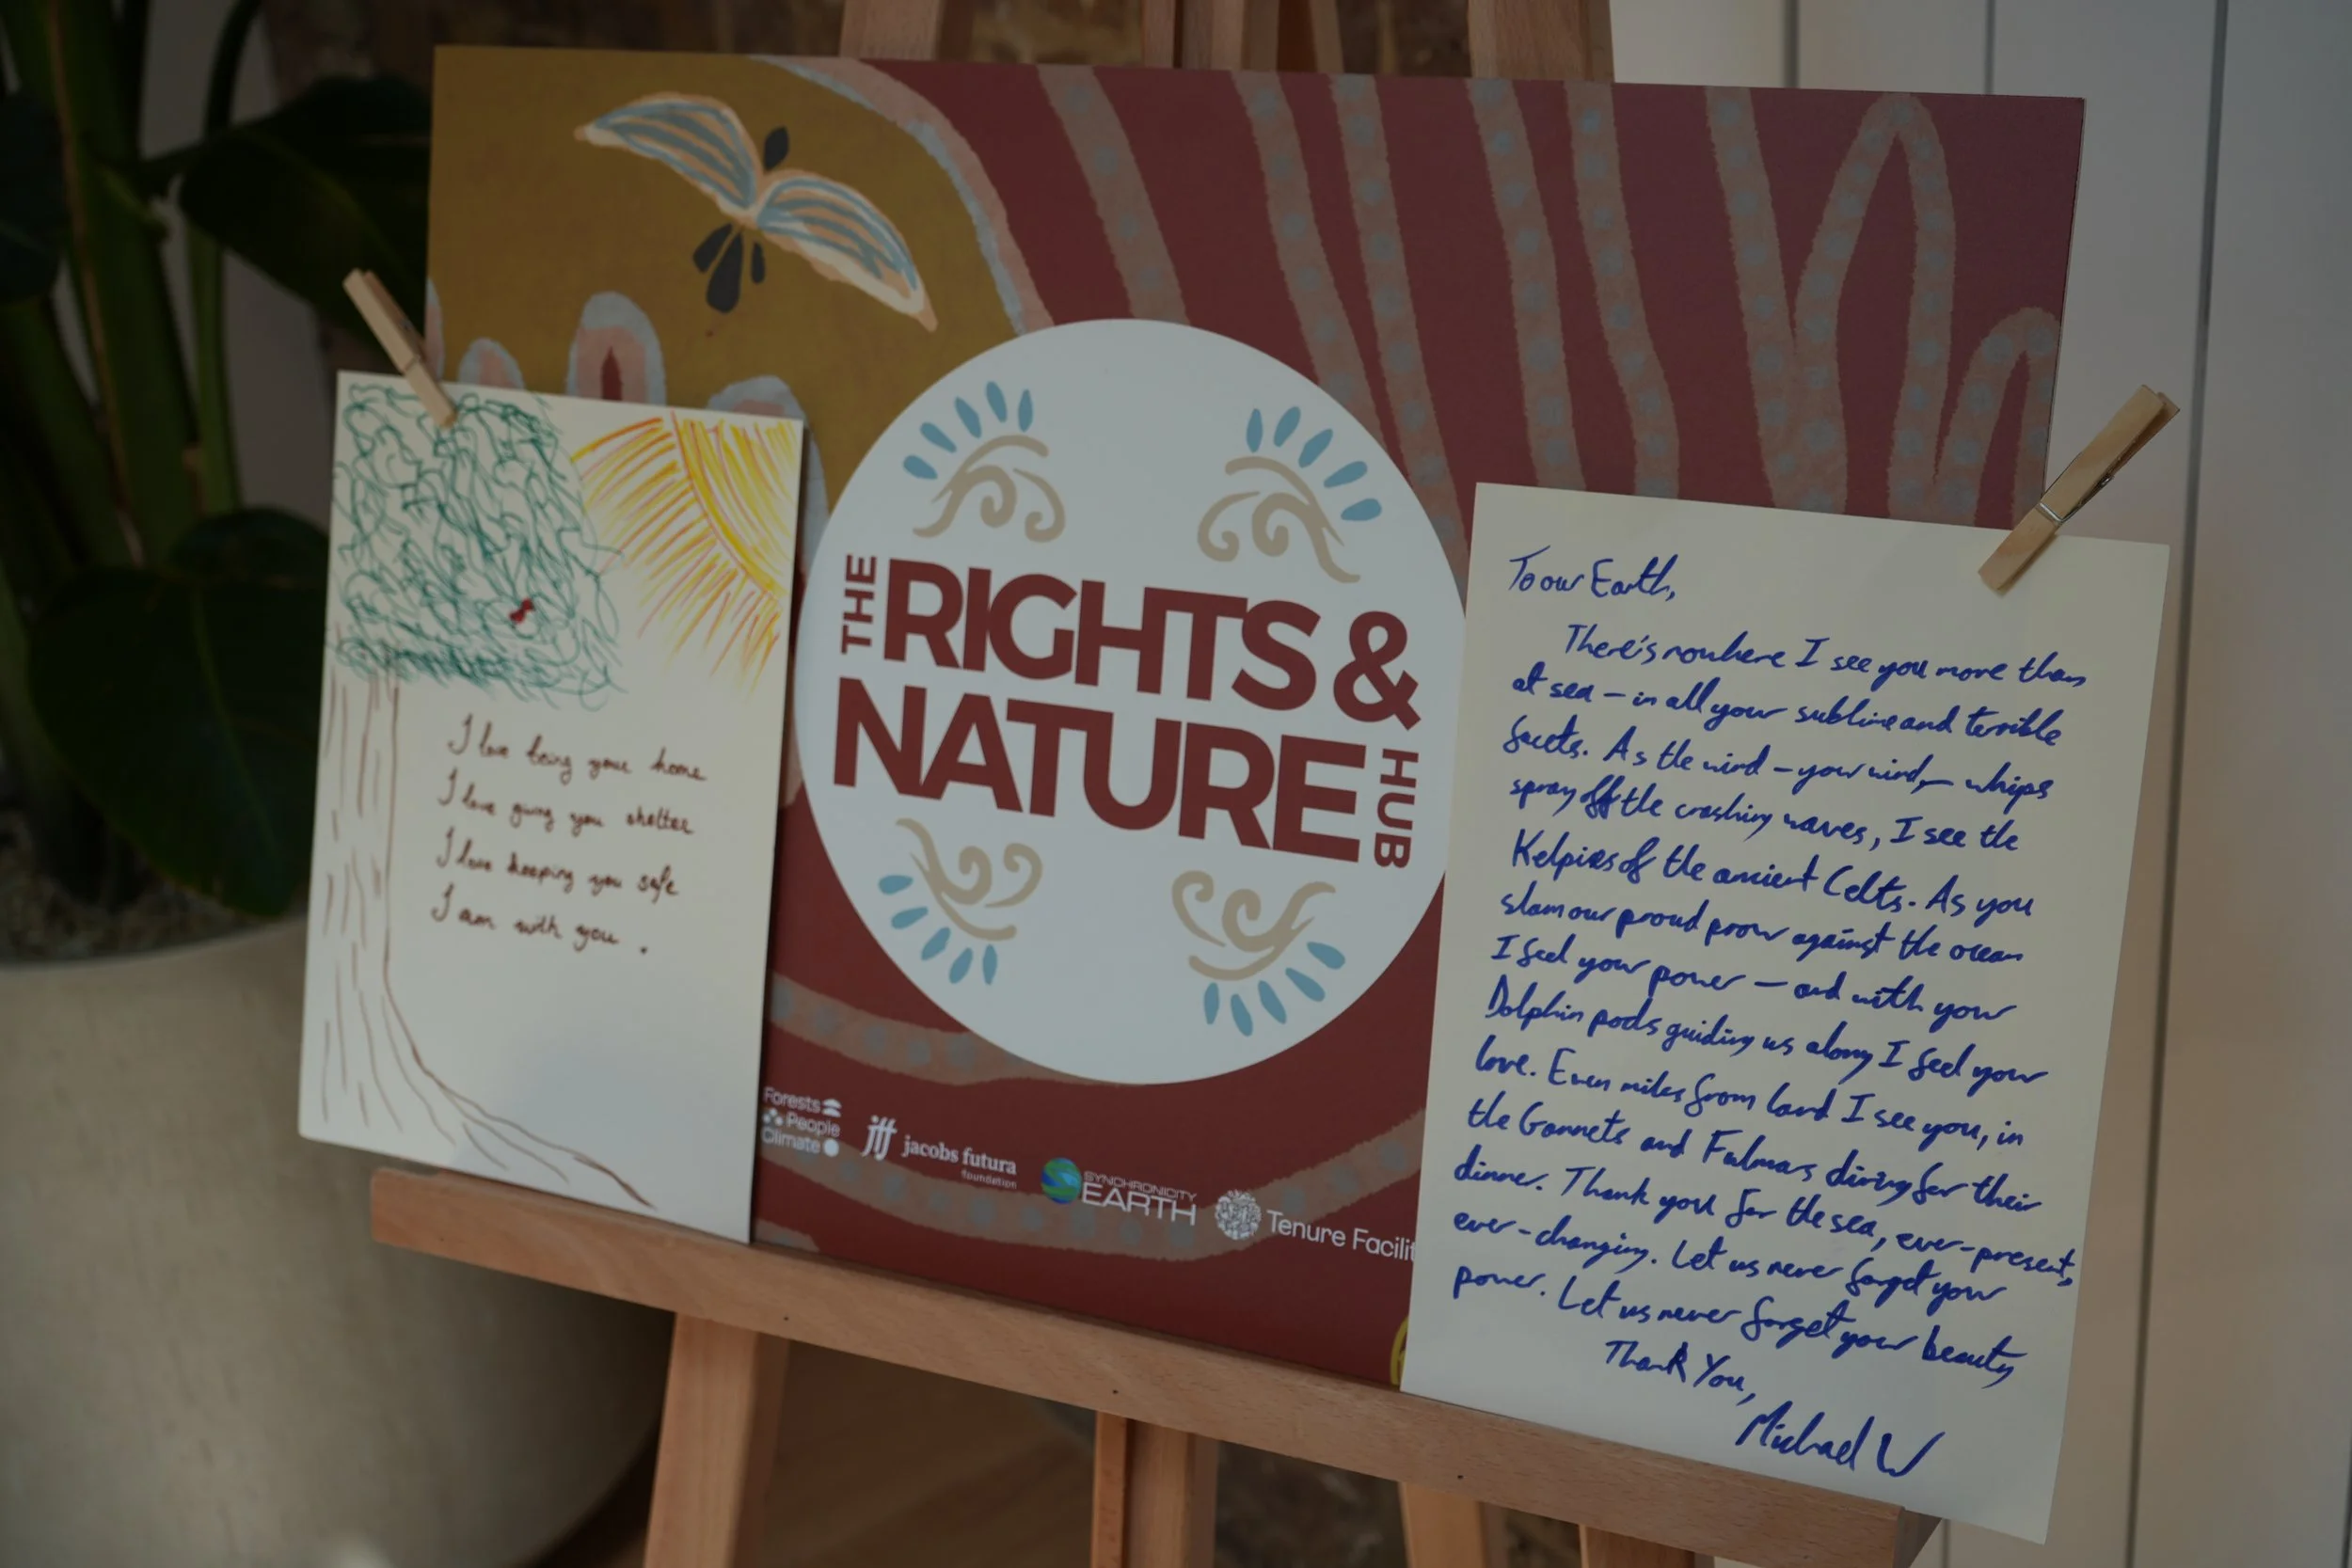 I love being your home
I love giving you shelter
I love keeping you safe
I am with you.
THE
RIGHTS &
NATURE
HUB
Forests
People
Climate
jff jacobs futura
foundation
SYNCHRONICITY
EARTH
Tenure Facilit
To our Earth,
There's nowhere I see you more than
at sea – in all your sublime and terrible
facets. As the wind – your wind, – whips
spray off the crashing waves, I see the
Kelpies of the ancient Celts. As you
slam our proud prow against the ocean
I feel your power – and with your
Dolphin pods guiding us along I feel your
love. Even miles from land I see you, in
the Gannets and Fulmars diving for their
dinner. Thank you for the sea, ever-present,
ever-changing. Let us never forget your
power. Let us never forget your beauty
Thank You,
Michael W